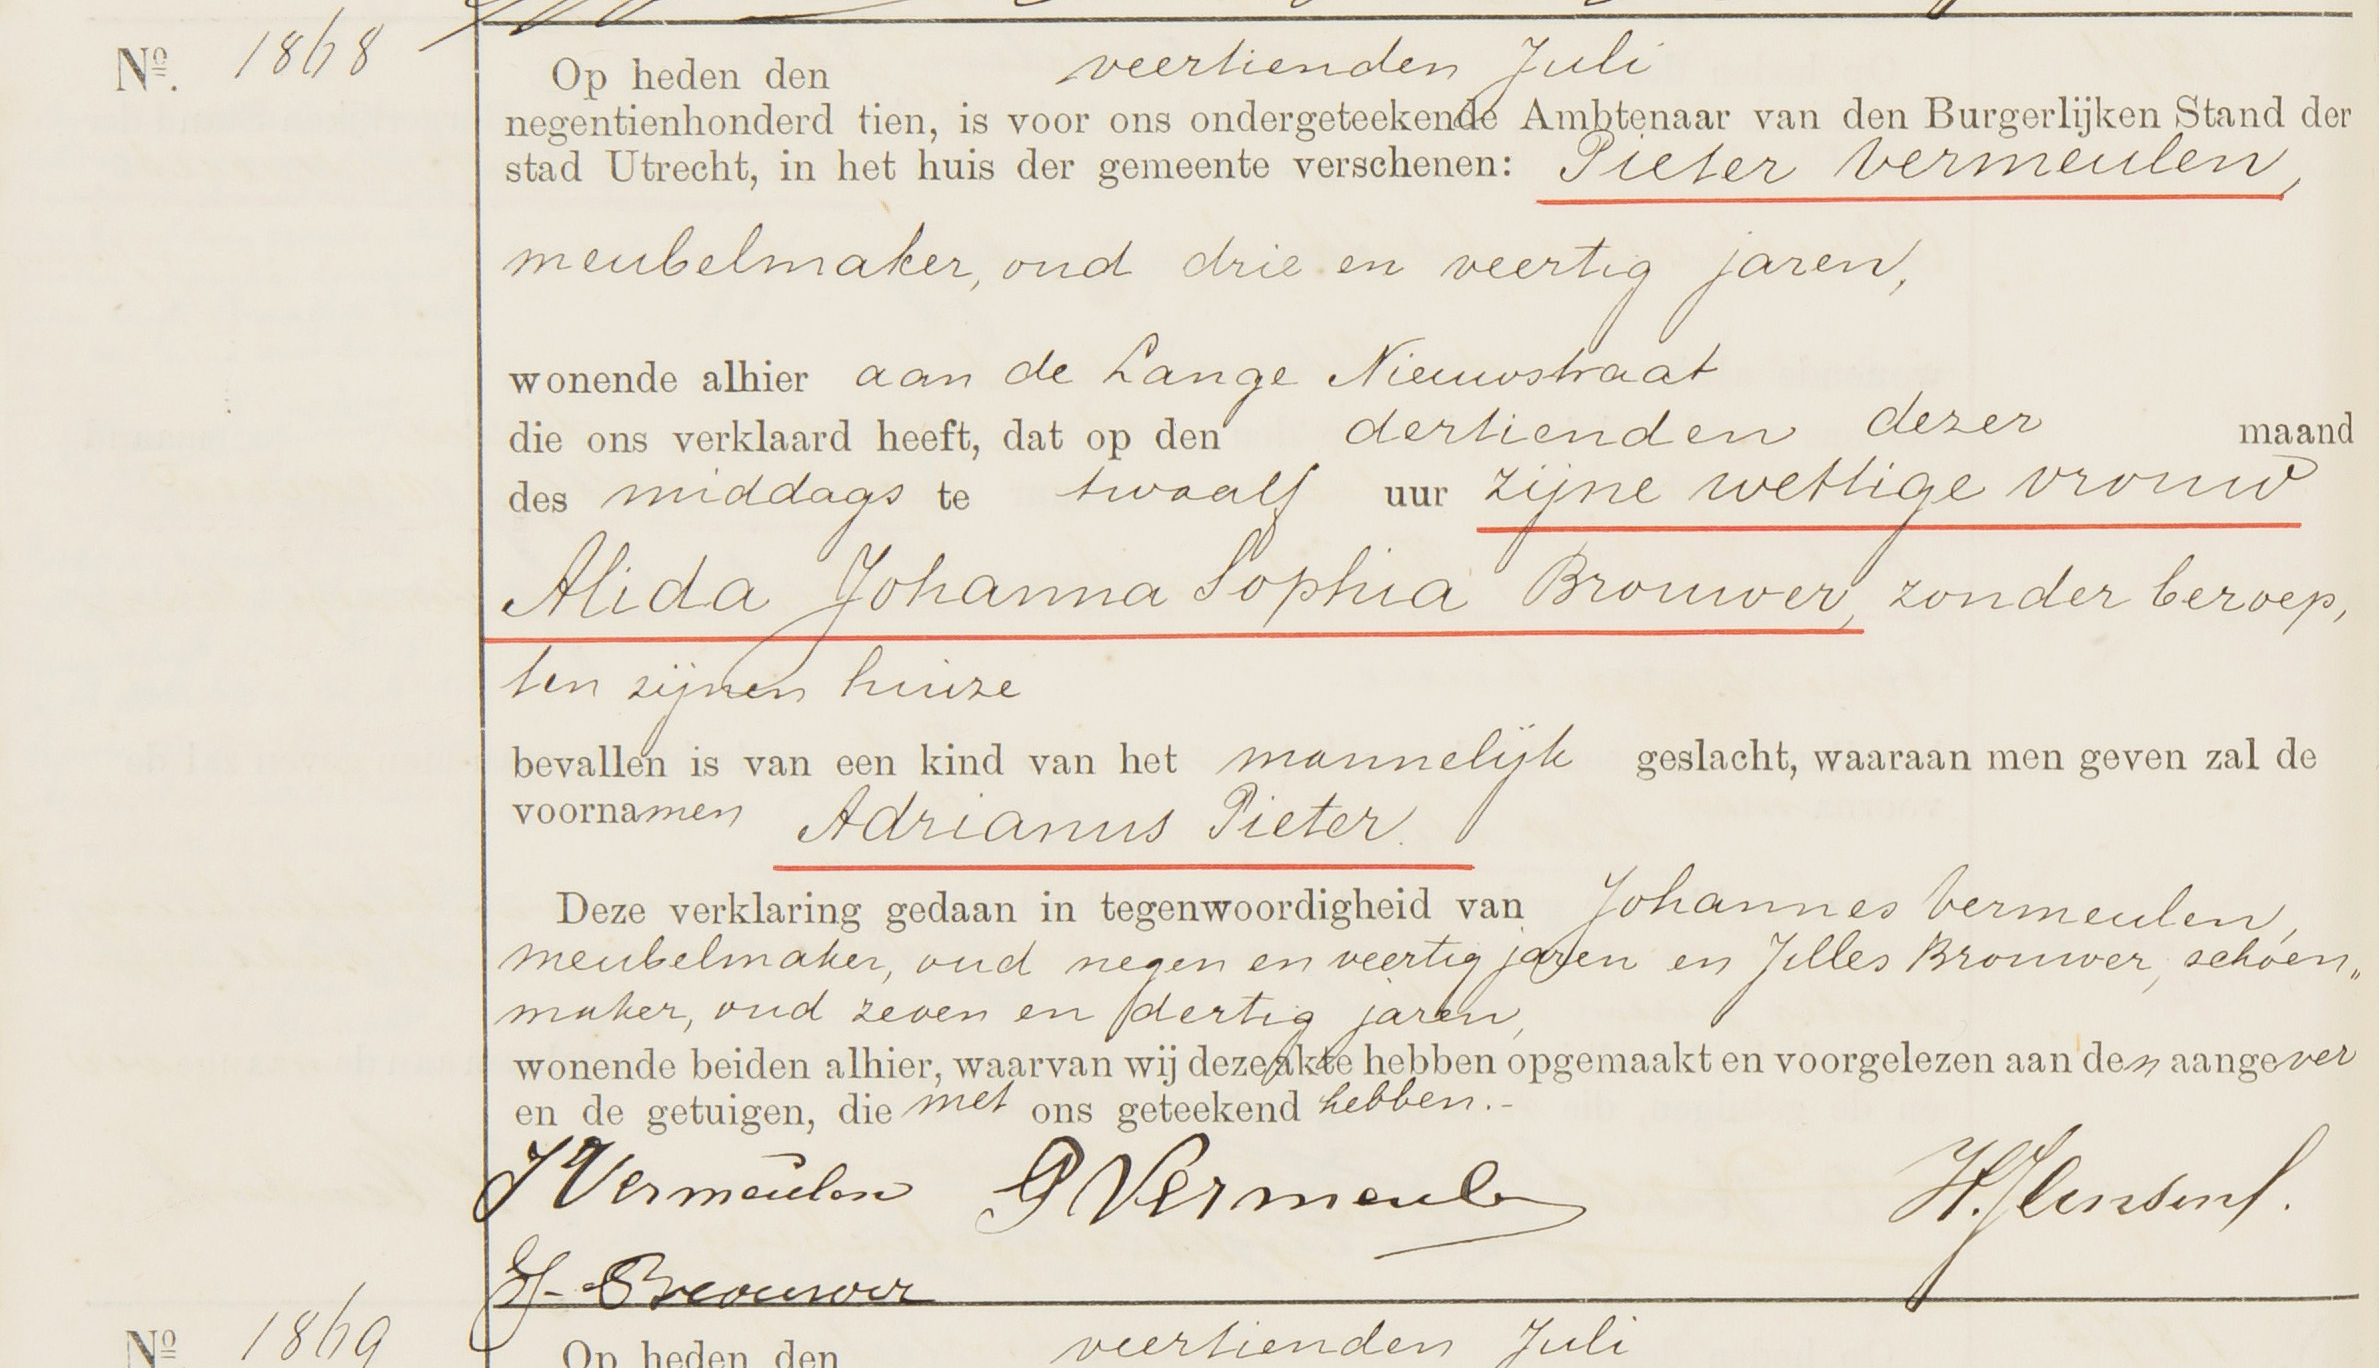 Nº. 1868
Op heden den veertienden Juli
negentienhonderd tien, is voor ons ondergeteekende Ambtenaar van den Burgerlijken Stand der
stad Utrecht, in het huis der gemeente verschenen: Pieter Vermeulen,
meubelmaker, oud drie en veertig jaren,
wonende alhier aan de Lange Nieuwstraat
die ons verklaard heeft, dat op den dertienden dezer maand
des middags te twaalf uur zijne wettige vrouw
Alida Johanna Sophia Brouwer, zonder beroep,
ten zijnen huize
bevallen is van een kind van het mannelijk geslacht, waaraan men geven zal de
voornamen Adrianus Pieter.
Deze verklaring gedaan in tegenwoordigheid van Johannes Vermeulen,
meubelmaker, oud negen en veertig jaren en Jilles Brouwer, schoen„
maker, oud zeven en dertig jaren,
wonende beiden alhier, waarvan wij deze akte hebben opgemaakt en voorgelezen aan den aangever
en de getuigen, die met ons geteekend hebben.-
J Vermeulen P Vermeulen
Brouwer
Nº 1869
Op heden den veertienden Juli